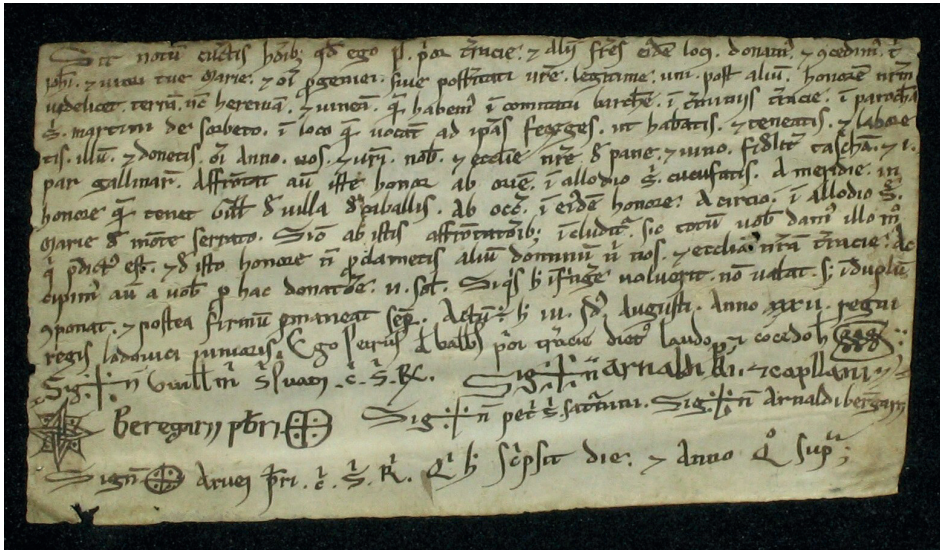 Sit notū cūctis hōib; qd ego P. p̄or t̄racie. & alij frēs eidē loci. donam᷒ & ꝯcedim᷒ t̄
ioh̄i. & uxori tue Marie. & oī ꝓgeniei. siue posteritati ur̄e. legitime. uni post aliū. honorē nr̄m
uidelicet terrā. ūc heremā. & uineā. q̄ habem᷒ ī comitatu barch̄. ī t̄miniis t̄racie. ī parrochia
s̄. martini de sorbeto. ī loco q̄ uocāt ad ip̄as feixes. ut habeatis. & teneatis. & labore
tis. illū. & donetis. oī Anno. uos. & ur̄i. nob̄. & eccl̄ie nr̄e d̄ pane. & uino. fidl̄it̄ taschā. & .i.
par gallinar̄. Affrōtat aū iste honor ab oriē. ī allodio s̄. cucufatis. A meridie. in
honore q̄ tenet Guill̄ d̄ uilla d̄ caballis. Ab occ̄. ī eidē honore. A circio. ī allodio s̄.
Marie d̄ mōte serrato. Sic̄ ab istis affrōtatōib; īcludit̄. sic totū uob̄ dam᷒ illo m̊
q̊ p̄dict᷒ est. & d̄ isto honore n̄ ꝓclametis aliū dominū n̄ nos. & eccl̄iā nr̄ā t̄racie. Ac
cipim᷒ aū a uob̄ ꝓ hac donatōe. ii. sol̄. Siq̄s h̄ īfrīḡe uoluerit. nō ualeat. s; ī duplū
ꝯponat. & postea firmū ꝑmaneat sēp̄. Actū ē h̄ iii. id᷒ Augusti. Anno xxx ii. regni
regis lodouici iunioris. Ego Petrus d̄ balbs p̄or t̄racie dict᷒ laudo & ꝯcedo h̄
Sig+n̄ Guill̄mi s̄luatj. c̄. s̄. R̄. Sig+n̄ arnaldi & capllani
Beregarij pb̄ri Sig+n̄ pet̄ s̄. saturnini. Sig+n̄ Arnaldi berēgarij
Sign̄ Aruei pb̄ri. c̄. s̄. R̄. Q̄ h̄ sc̄psit die. & Anno q̊ sup̄;